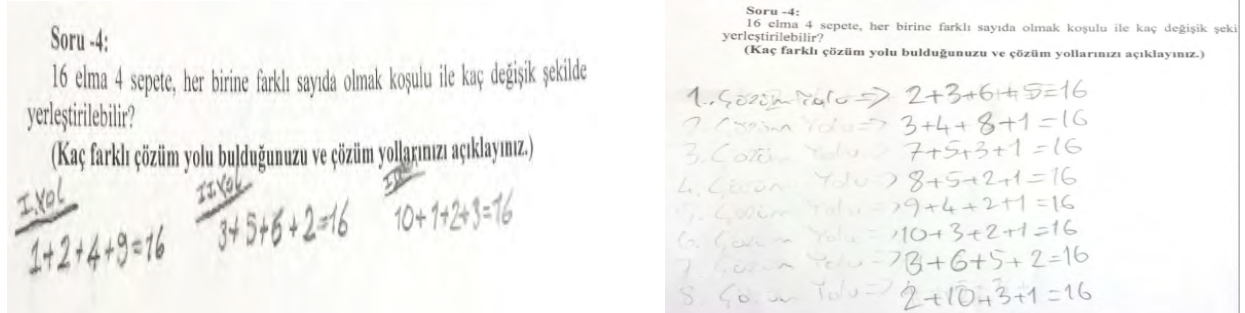 Soru -4:
16 elma 4 sepete, her birine farklı sayıda olmak koşulu ile kaç değişik şekilde
yerleştirilebilir?
(Kaç farklı çözüm yolu bulduğunuzu ve çözüm yollarınızı açıklayınız.)
I.YOL
1+2+4+9=16
II.YOL
3+5+6+2=16
10+1+2+3=16
Soru -4:
16 elma 4 sepete, her birine farklı sayıda olmak koşulu ile kaç değişik şeki
yerleştirilebilir?
(Kaç farklı çözüm yolu bulduğunuzu ve çözüm yollarınızı açıklayınız.)
1. Çözüm Yolu => 2+3+6+5=16
2. Çözüm Yolu => 3+4+8+1=16
3. Çözüm Yolu => 7+5+3+1=16
4. Çözüm Yolu => 8+5+2+1=16
5. Çözüm Yolu => 9+4+2+1=16
6. Çözüm Yolu => 10+3+2+1=16
7. Çözüm Yolu => 3+6+5+2=16
8. Çözüm Yolu => 2+10+3+1=16